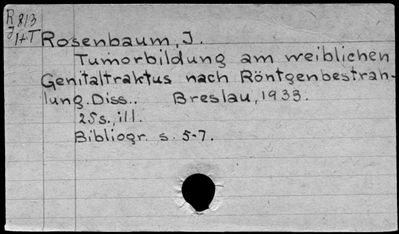 R 813
J 1+T
Rosenbaum, J.
Tumorbildung am weiblichen
Genitaltraktus nach Röntgenbestrah-
lung. Diss.. Breslau, 1933.
25s., ill.
Bibliogr. s. 5-7.